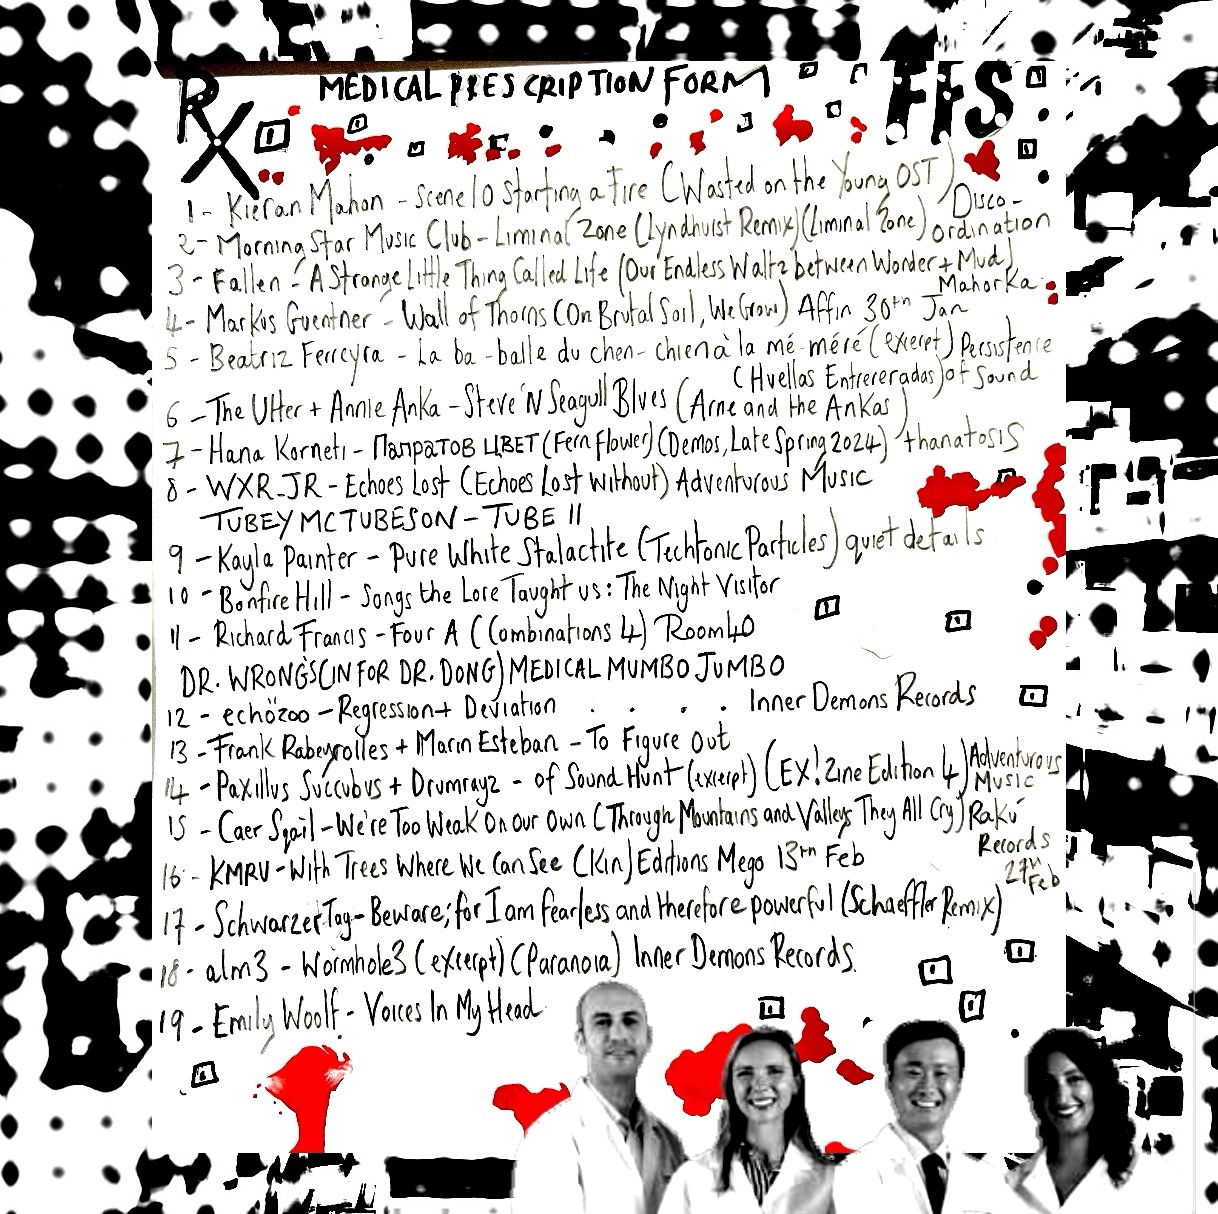 Rx MEDICAL PRESCRIPTION FORM FFS
1 - Kieran Mahon - Scene 10 Starting a Fire (Wasted on the Young OST)
2 - Morning Star Music Club - Liminal Zone (Lyndhurst Remix) (Liminal Zone) Disco-ordination
3 - Fallen - A Strange Little Thing Called Life (Our Endless Waltz between Wonder + Mud) Mahorka
4 - Markus Guentner - Wall of Thorns (On Brutal Soil, We Grow) Affin 30th Jan
5 - Beatriz Ferreyra - La ba-balle du chen-chien à la mé-méré (exceret) Persistence of Sound
(Huellas Entrereradas)
6 - The Utter + Annie Anka - Steve 'N Seagull Blues (Arne and the Ankas)
7 - Hana Korneti - Папратов ЦВЕТ (Fern flower) (Demos, Late Spring 2024) thanatosis
8 - WXR_JR - Echoes Lost (Echoes Lost Without) Adventurous Music
TUBEY MCTUBESON - TUBE 11
9 - Kayla Painter - Pure White Stalactite (Tectonic Particles) quiet details
10 - Bonfire Hill - Songs the Lore Taught us: The Night Visitor
11 - Richard Francis - Four A (Combinations 4) Room40
DR. WRONG'S (IN FOR DR. DONG) MEDICAL MUMBO JUMBO
12 - echözoo - Regression + Deviation . . . . Inner Demons Records
13 - Frank Rabeyrolles + Marin Esteban - To Figure Out
14 - Paxillus Succubus + Drumrayz - of Sound Hunt (excerpt) (EX! Zine Edition 4) Adventurous Music
15 - Caer Sgail - We're Too Weak On our Own (Through Mountains and Valleys They All Cry) Raku Records 27th Feb
16 - KMRU - With Trees Where We Can See (Kin) Editions Mego 13th Feb
17 - Schwarzer Tag - Beware; for I am fearless and therefore powerful (Schaeffler Remix)
18 - alm3 - Wormhole3 (excerpt) (Paranoia) Inner Demons Records.
19 - Emily Woolf - Voices In My Head